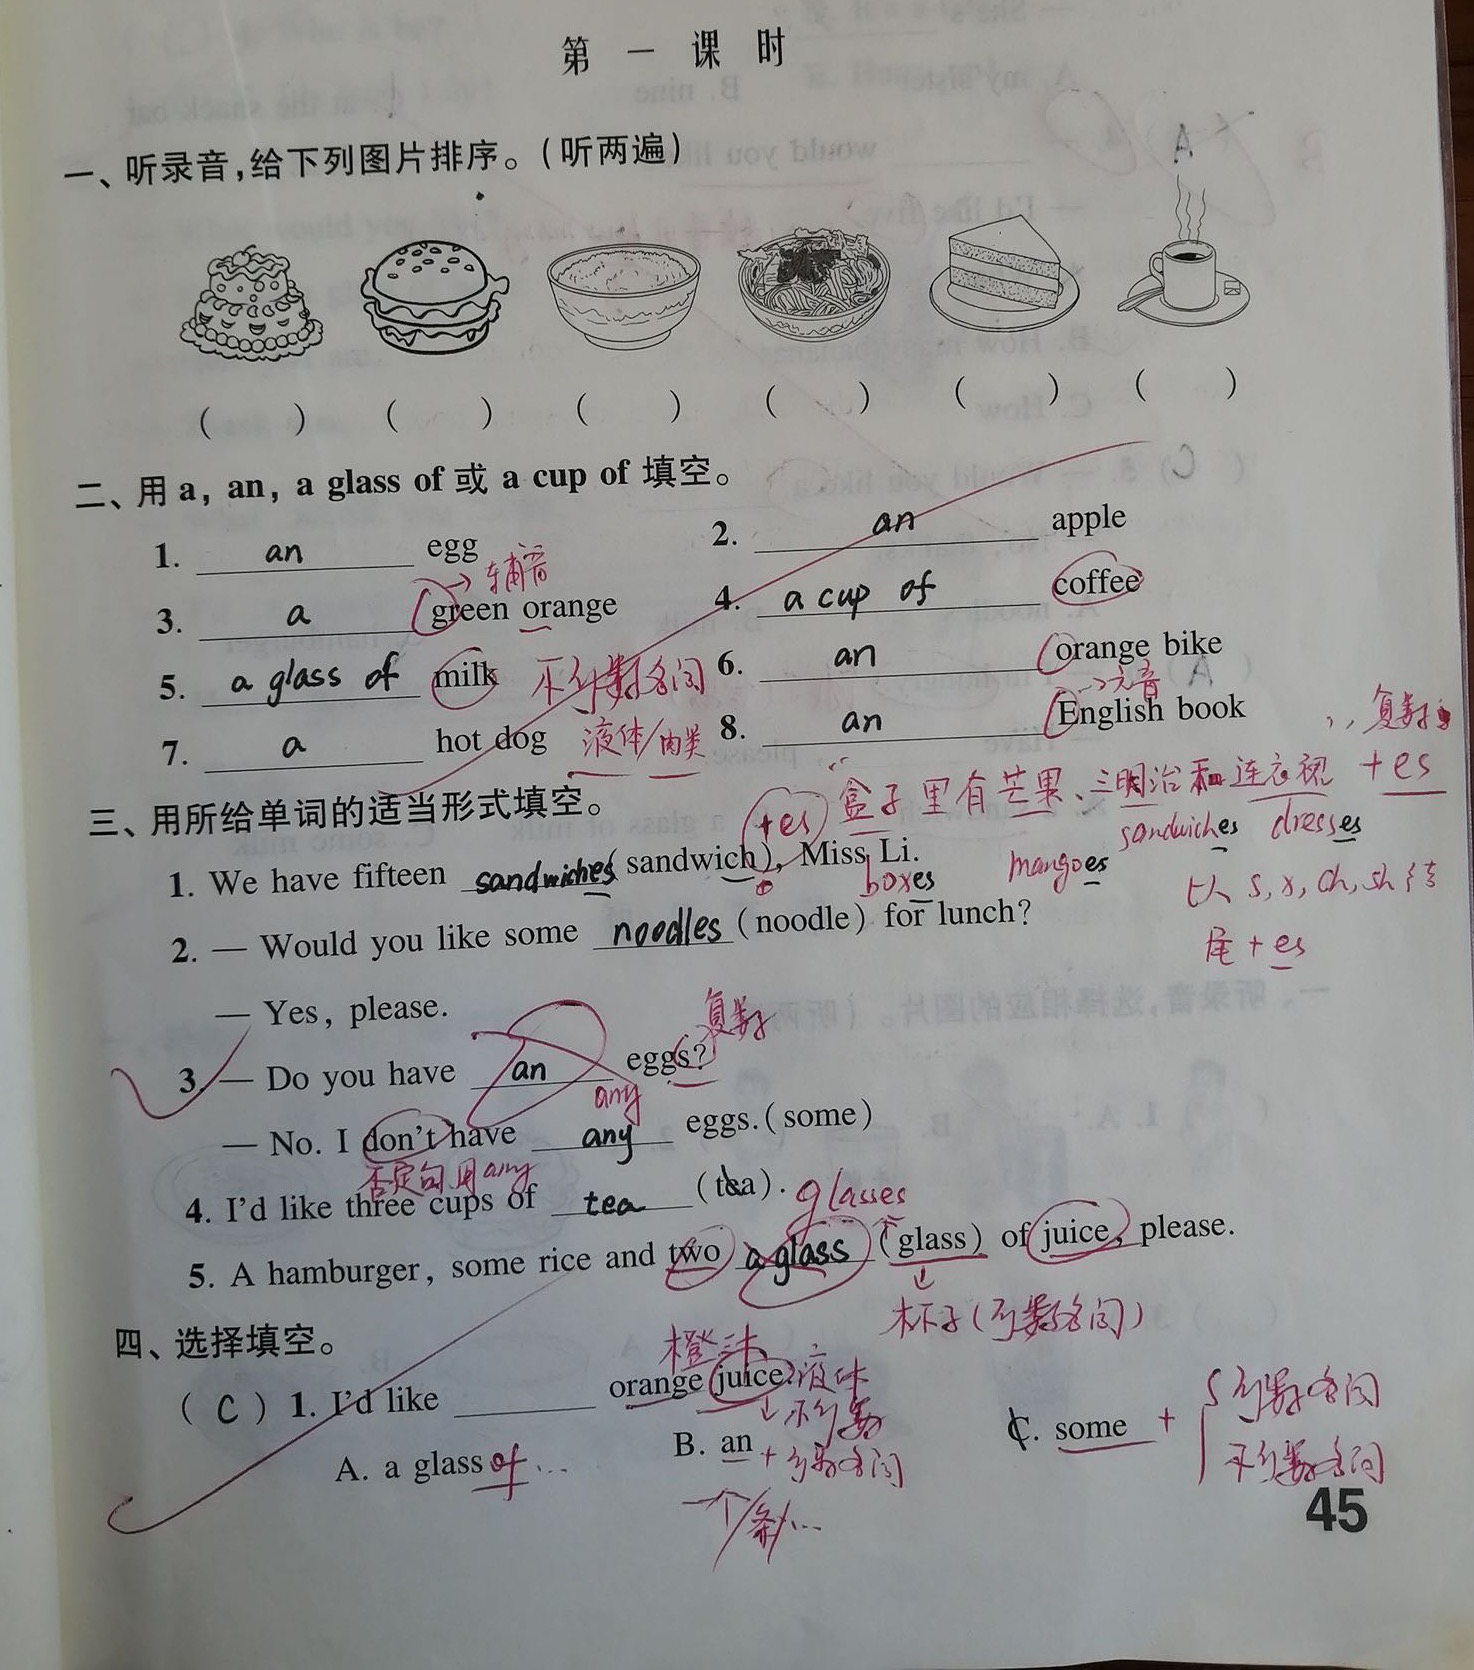 第一课时
一、听录音,给下列图片排序。(听两遍)
A
(   ) (   ) (   ) (   ) (   ) (   )
二、用 a, an, a glass of 或 a cup of 填空。
1. an egg 2. an apple
辅音
3. a green orange 4. a cup of coffee
5. a glass of milk 不可数名词 6. an orange bike
元音
7. a hot dog 液体/肉类 8. an English book
复数
盒子里有芒果、三明治和连衣裙 +es
三、用所给单词的适当形式填空。
+es
sandwiches dresses
1. We have fifteen sandwiches (sandwich), Miss Li.
boxes mangoes
以 s, x, ch, sh 结
尾 + es
2. — Would you like some noodles (noodle) for lunch?
— Yes, please.
复数
3. — Do you have an eggs?
any
— No. I don't have any eggs. (some)
否定句用any
4. I'd like three cups of tea (tea).
glasses
5. A hamburger, some rice and two a glass (glass) of juice, please.
杯子(可数名词)
四、选择填空。
橙汁
( C ) 1. I'd like ______ orange juice. 液体
不可数
A. a glass of ... B. an + 可数名词 C. some + 可数名词
不可数名词
一个/条/...
45